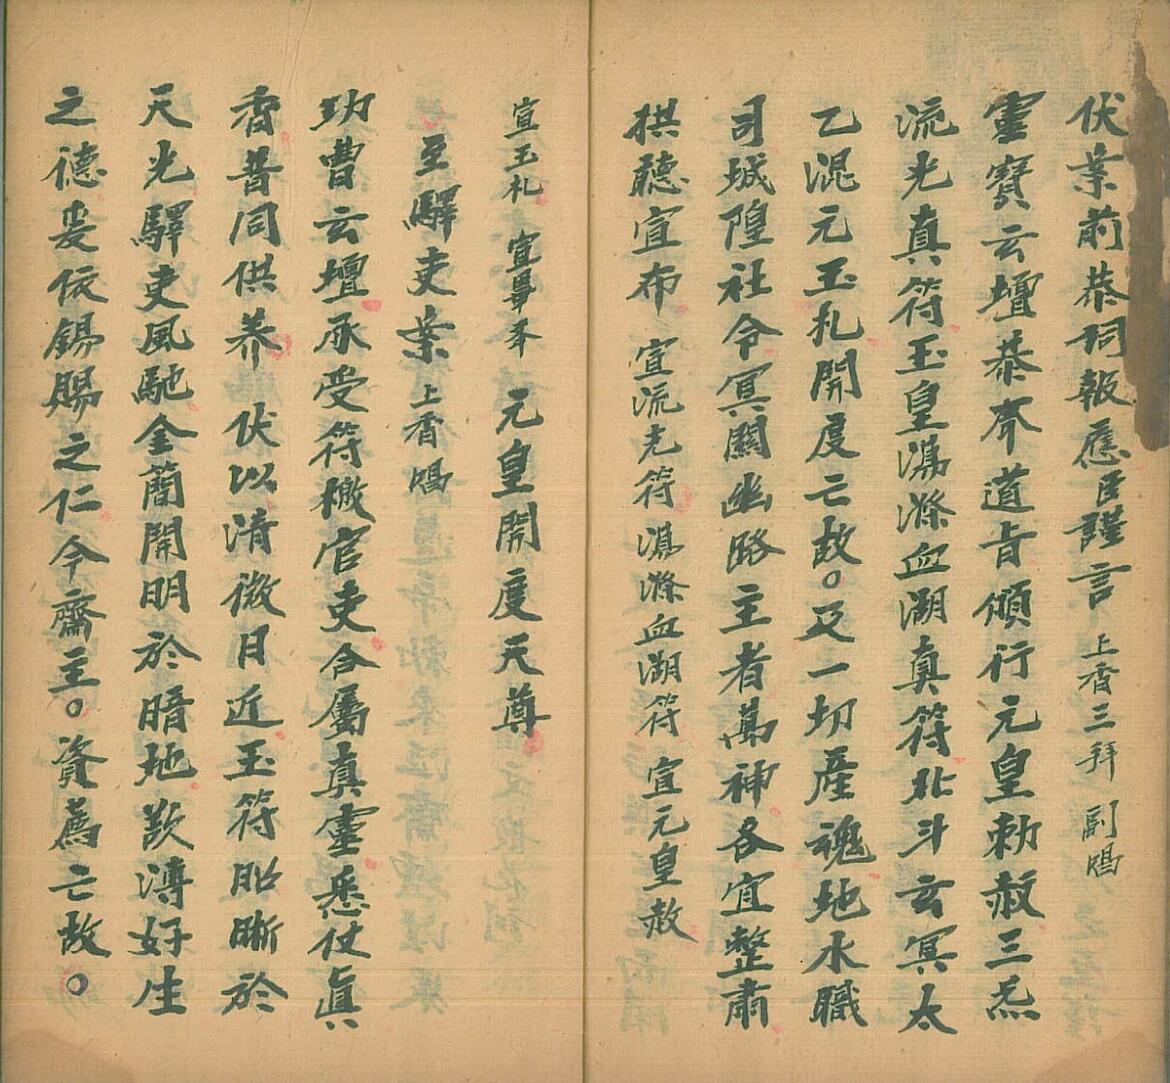 伏業前恭伺報應臣謹言 上香三拜 副陽
靈寶云壇恭奉道旨頒行元皇勅赦三炁
流光真符玉皇蕩滌血湖真符北斗玄冥太
乙混元玉札開度亡故○及一切產魂地水職
司城隍社令冥關幽路主者萬神各宜整肅
拱聽宣布 宣流光符 蕩滌血湖符 宣元皇赦
宣玉札 宣畢來 元皇開度天尊
至驛吏業上香陽
功曹云壇承受符檄官吏合屬真靈悉仗真
香普同供养 伏以清微日近玉符昭晰於
天光驛吏風馳金蘭開明於暗地欽溥好生
之德爰依錫賜之仁今齋主○資薦亡故○